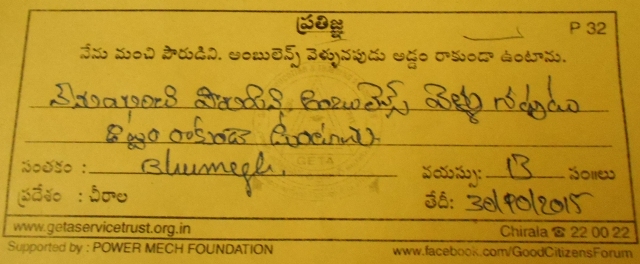 ప్రతిజ్ఞ
P 32
నేను మంచి పౌరుడిని. అంబులెన్స్ వెళ్ళునపుడు అడ్డం రాకుండా ఉంటాను.
అంబులెన్స్ వెళ్ళు నప్పుడు
రాకుండా
సంతకం : Bhumegh. వయస్సు: 13 సం॥లు
ప్రదేశం : చీరాల తేదీ: 30/10/2015
www.getaservicetrust.org.in Chirala ☎ 22 00 22
Supported by : POWER MECH FOUNDATION www.facebook.com/GoodCitizensForum